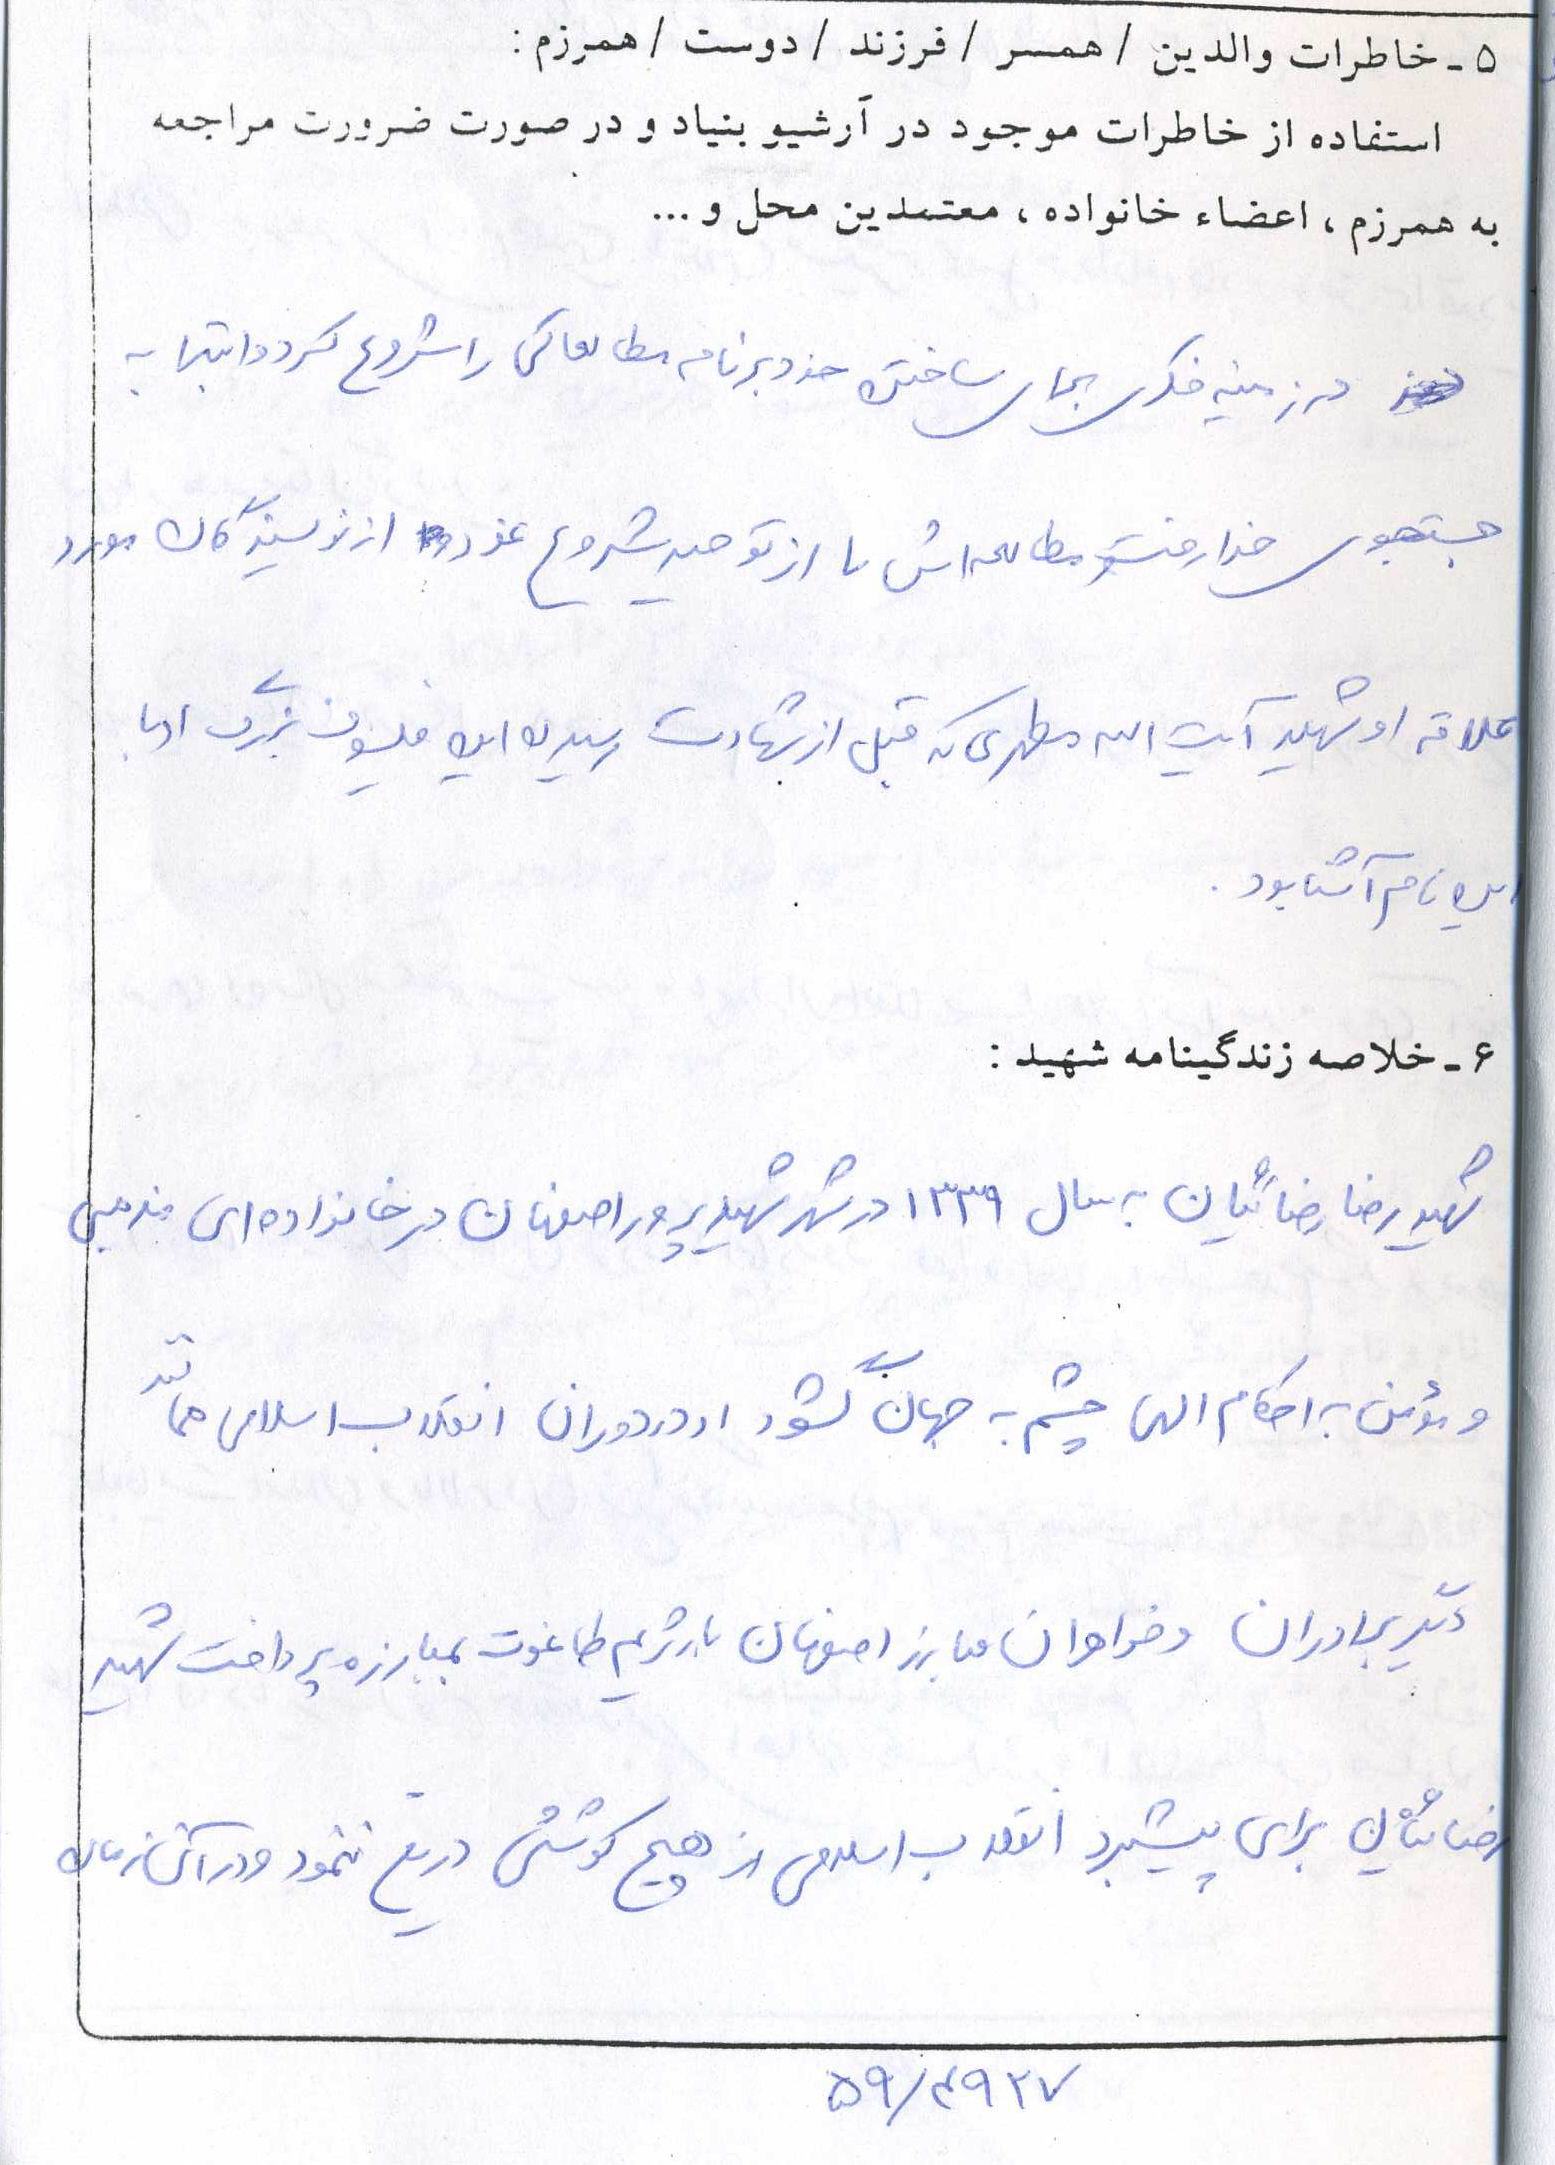 ۵ ـ خاطرات والدین / همسر / فرزند / دوست / همرزم :
استفاده از خاطرات موجود در آرشیو بنیاد و در صورت ضرورت مراجعه
به همرزم ، اعضاء خانواده ، معتمدین محل و ...
در زمینه فکری بجای ساختن خود برنامه مطالعاتی را شروع کرد و ابتدا به
جستجوی خدا رفت و مطالعه اش را از توحید شروع نمود و از نویسندگان مورد
علاقه او شهید آیت الله مطهری که قبل از شهادت رسیدن این فیلسوف بزرگ او با
این نام آشنا بود .
۶ ـ خلاصه زندگینامه شهید :
شهید رضا رضائیان به سال ۱۳۳۹ در شهر شهید پرور اصفهان در خانواده ای مذهبی
و مؤمن به احکام الهی چشم به جهان گشود او در دوران انقلاب اسلامی همانند
دیگر برادران و خواهران مبارز اصفهان با رژیم طاغوت بمبارزه پرداخت شهید
رضائیان برای پیشبرد انقلاب اسلامی از هیچ کوششی دریغ ننمود و در آن زمان
۵۹/۴۹۲۷